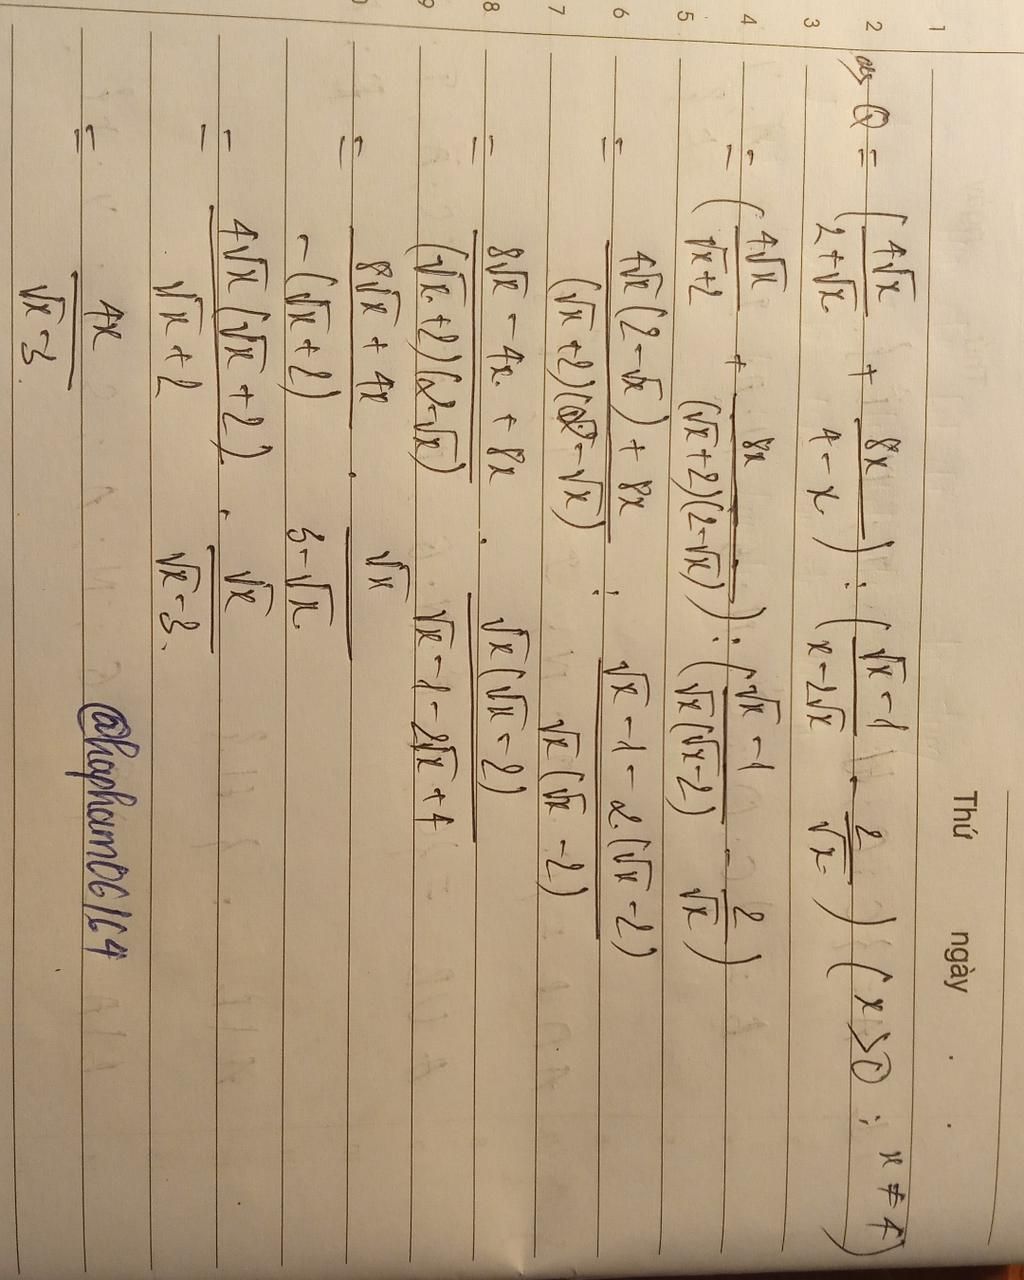 Thứ ngày
1
2
3
4
5
6
7
8
9
Q = (4√x/(2+√x) + 8x/(4-x)) : ((√x-1)/(x-2√x) - 2/√x) (x>0; x≠4)
= (4√x/(√x+2) + 8x/((√x+2)(2-√x))) : ((√x-1)/(√x(√x-2)) - 2/√x)
= (4√x(2-√x)+8x)/((√x+2)(2-√x)) : (√x-1-2.(√x-2))/(√x(√x-2))
= (8√x-4x+8x)/((√x+2)(2-√x)) . √x(√x-2)/(√x-1-2√x+4)
= (8√x+4x)/(-(√x+2)) . √x/(3-√x)
= 4√x(√x+2)/(√x+2) . √x/(√x-3)
= 4x/(√x-3)
@hapham06164